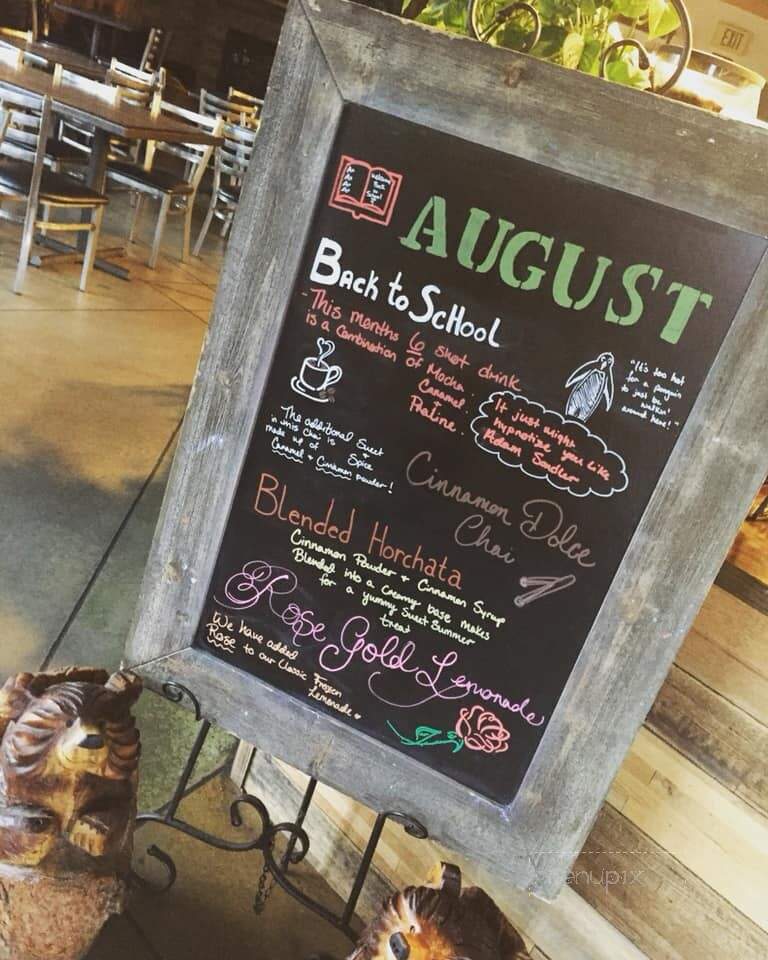 EXIT
Welcome
Back
to
School!
AUGUST
BACK to ScHool
-This months 6 shot drink
is a combination of Mocha
Caramel
+
Praline.
"It's too hot
for a penguin
to just be
walkin'
around here!"
It just might
hypnotize you like
Adam Sandler
The additional Sweet
in this Chai is +
made up of Spice
Caramel + Cinnamon powder!
Cinnamon Dolce
Chai
Blended Horchata
Cinnamon Powder + Cinnamon Syrup
Blended into a creamy base makes
for a yummy Sweet Summer
treat
Rose Gold Lemonade
We have added
Rose to our Classic Frozen
Lemonade